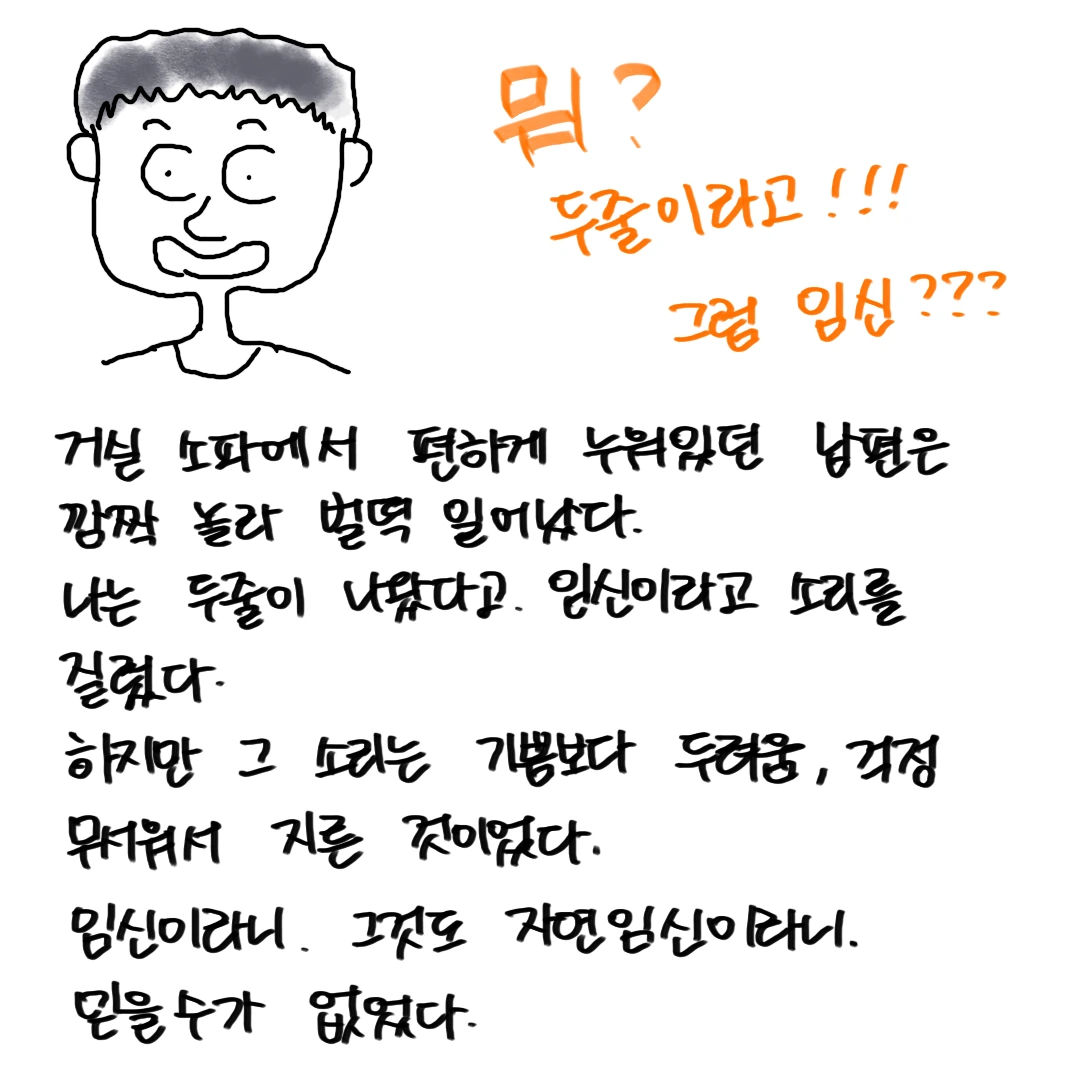 뭐?
두줄이라고!!!
그럼 임신???
거실 소파에서 편하게 누워있던 남편은
깜짝 놀라 벌떡 일어났다.
나는 두줄이 나왔다고. 임신이라고 소리를
질렀다.
하지만 그 소리는 기쁨보다 두려움, 걱정
무서워서 지른 것이었다.
임신이라니. 그것도 자연임신이라니.
믿을수가 없었다.